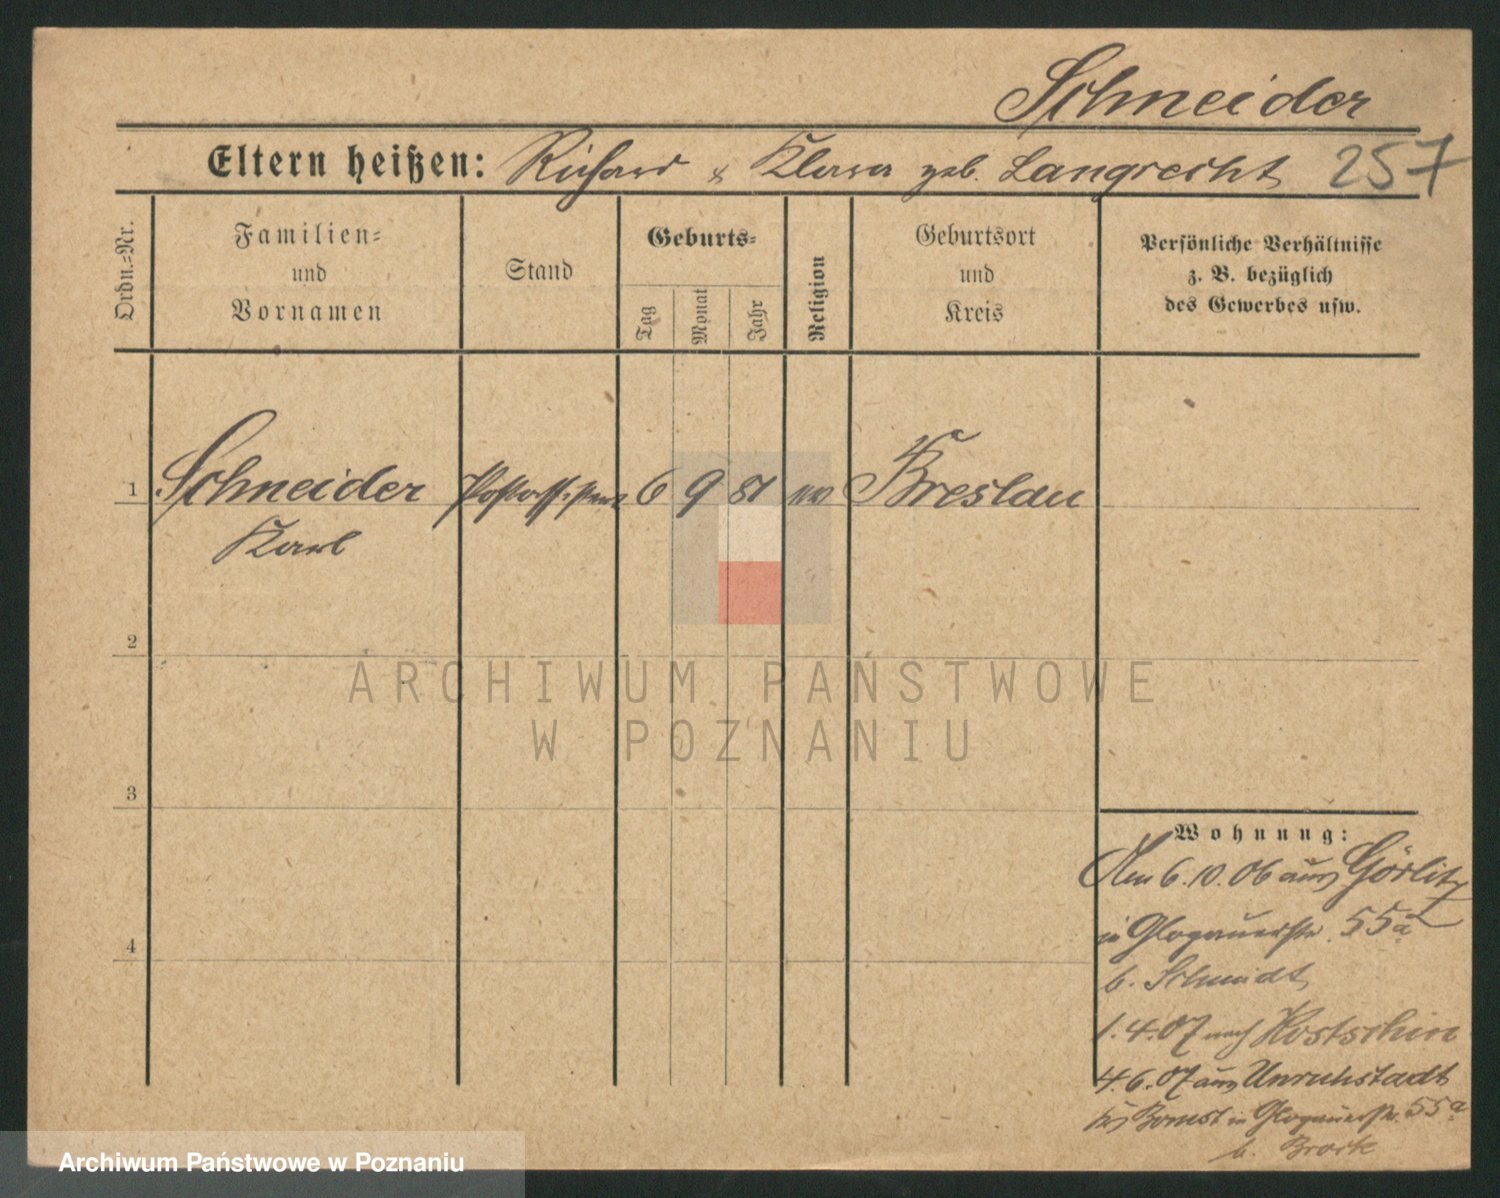 Schneider
Eltern heißen: Richard & Klara geb. Langrecht 257
Ordn.=Nr.
Familien=
und
Vornamen
Stand
Geburts=
Tag
Monat
Jahr
Religion
Geburtsort
und
Kreis
Persönliche Verhältnisse
z. B. bezüglich
des Gewerbes usw.
1 Schneider Postassistent 6 9 81 ev Breslau
Karl
2
3
4
Wohnung:
Am 6.10.06 aus Görlitz
in Glogauerstr. 55a
b. Schmidt
1.4.07 nach Kostschin
4.6.07 aus Unruhstadt
Krs Bomst in Glogauerstr. 55a
b. Brock
ARCHIWUM PAŃSTWOWE
W POZNANIU
Archiwum Państwowe w Poznaniu